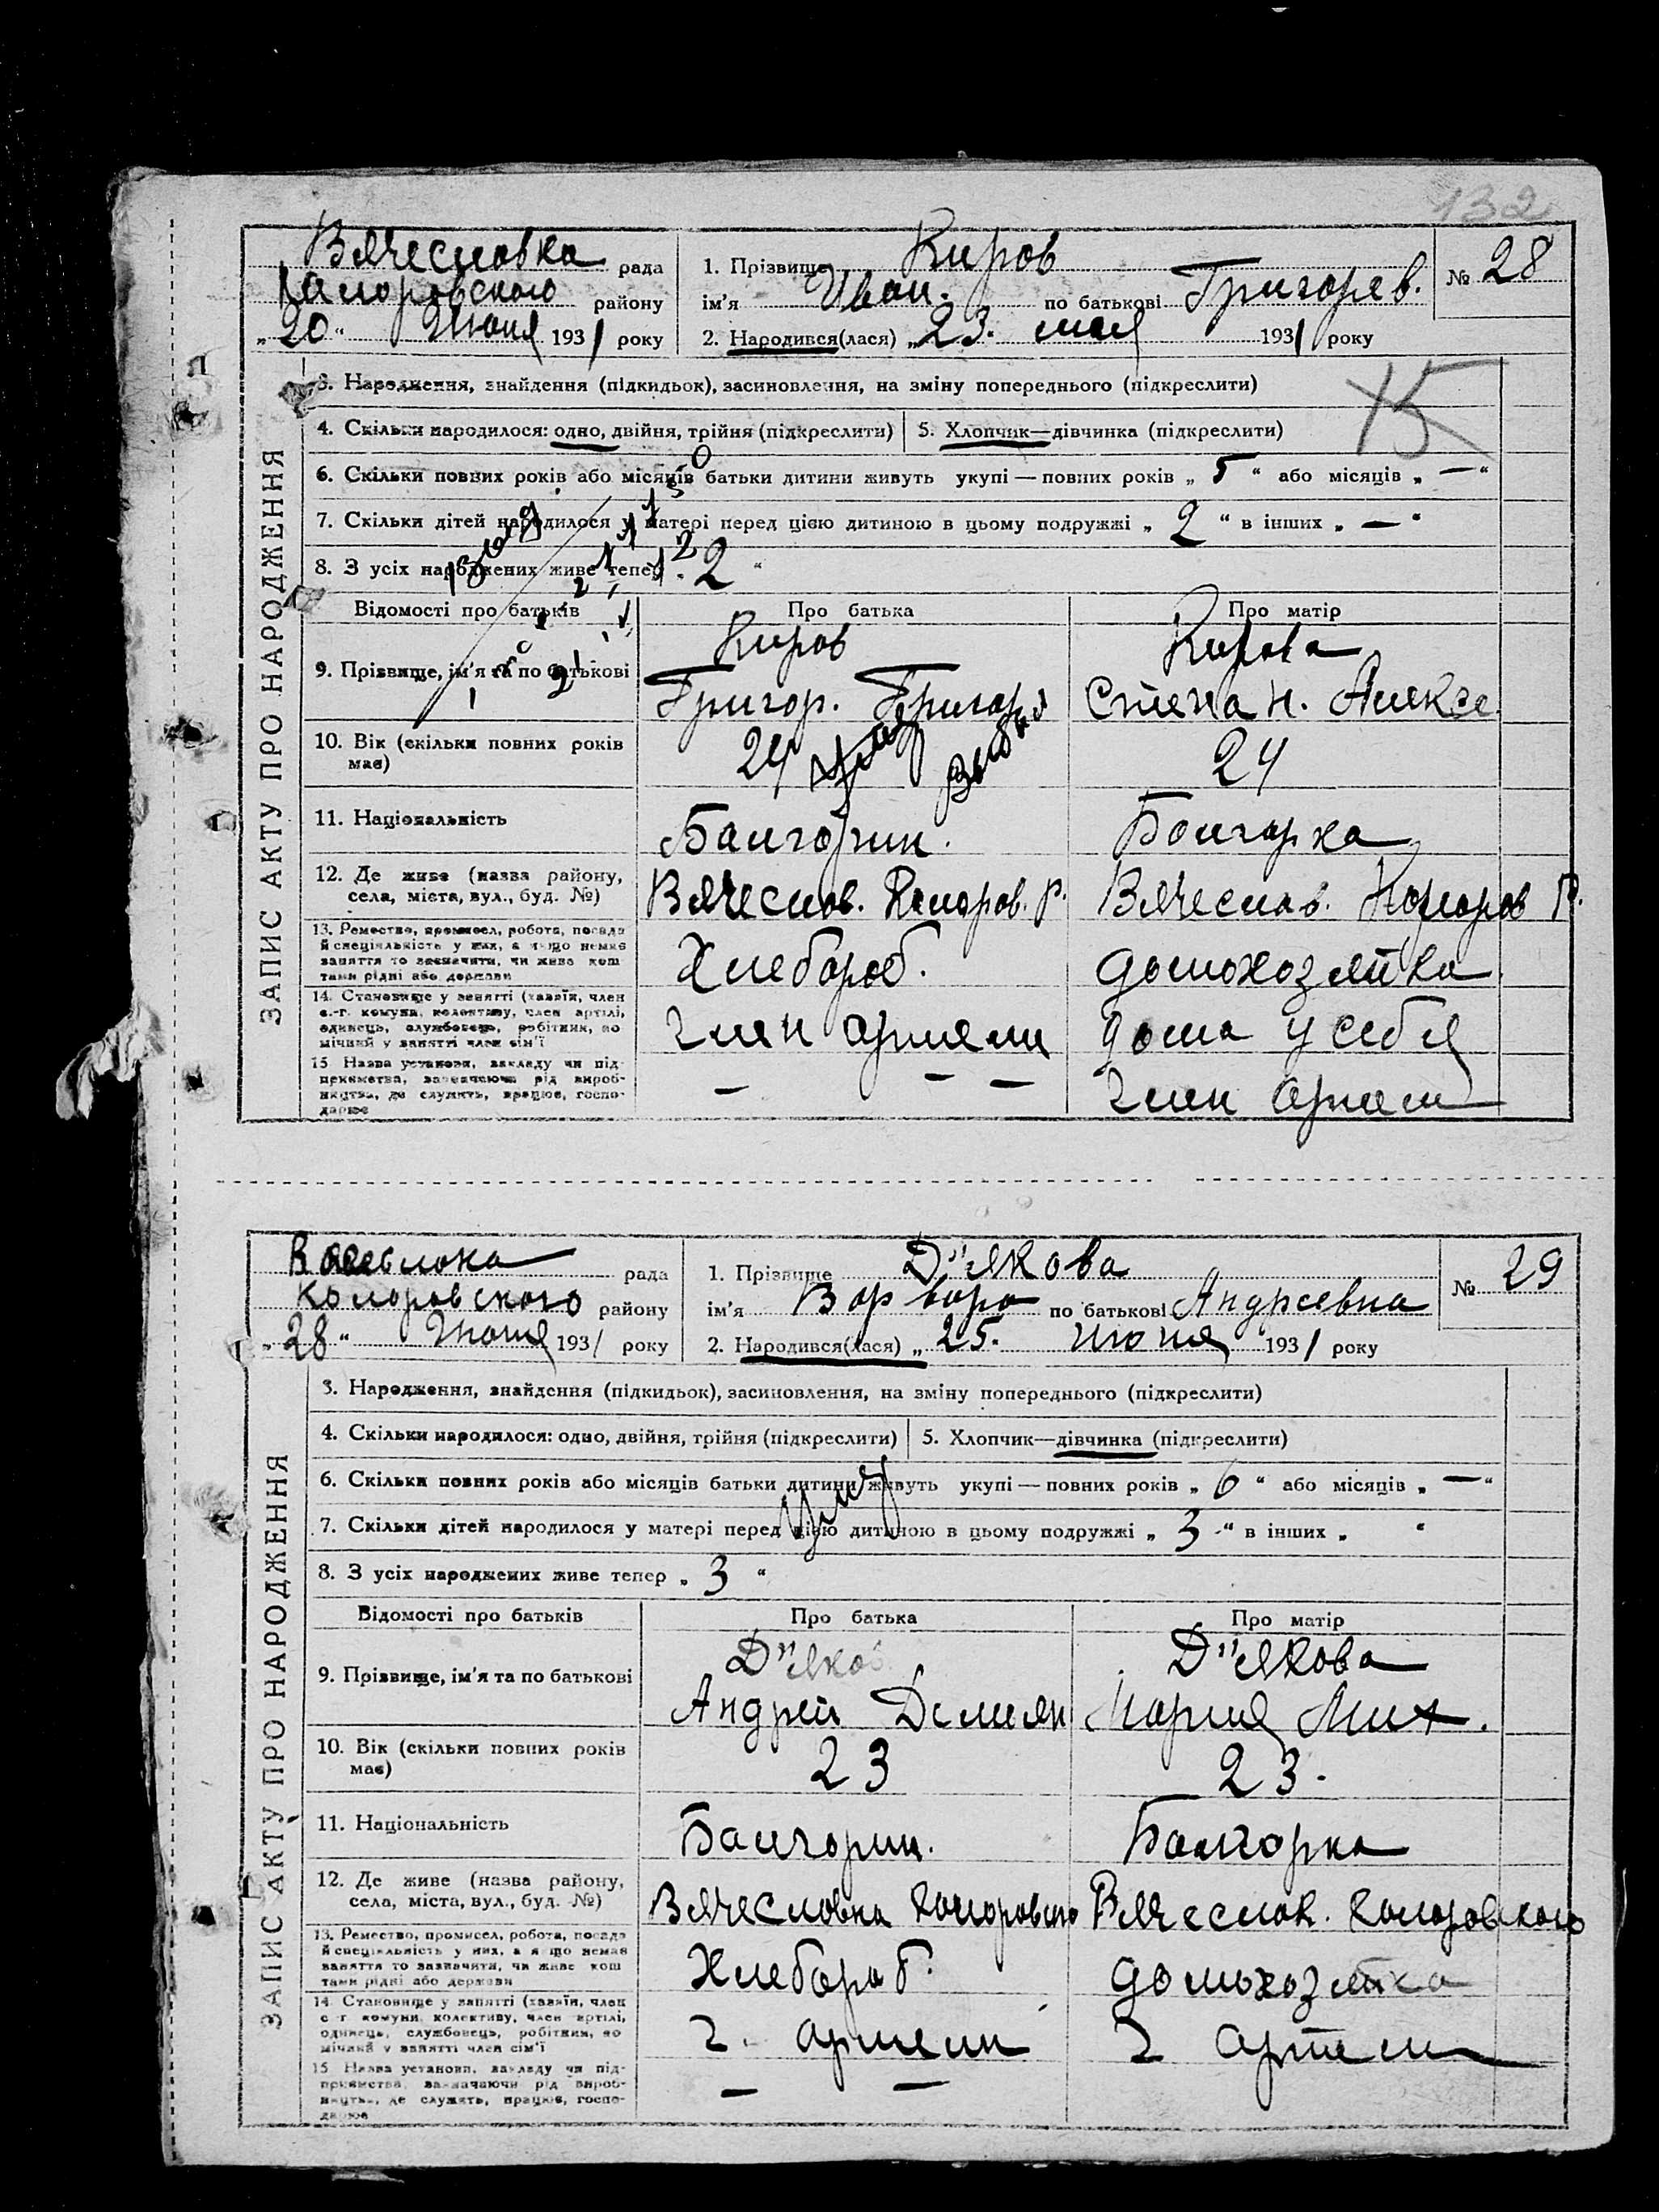 132
Вячесловка рада
Коларовского району
„20“ Июня 1931 року
1. Прізвище Киров
ім'я Иван. по батькові Григорев.
2. Народився(лася) „23. мая 1931 року
№ 28
ЗАПИС АКТУ ПРО НАРОДЖЕННЯ
3. Народження, знайдення (підкидьок), засиновлення, на зміну попереднього (підкреслити)
4. Скільки народилося: одно, двійня, трійня (підкреслити) 5. Хлопчик—дівчинка (підкреслити)
6. Скільки повних років або місяців батьки дитини живуть укупі — повних років „ 5 “ або місяців „ — “
7. Скільки дітей народилося у матері перед цією дитиною в цьому подружжі „ 2 “ в інших „ — “
8. З усіх народжених живе тепер „ 2 “
Відомості про батьків Про батька Про матір
9. Прізвище, ім'я та по батькові Киров Кирова
Григор. Григорь Степан. Алексе
10. Вік (скільки повних років має) 24 24
11. Національність Балгорин. Болгорка
12. Де живе (назва району, села, міста, вул., буд. №) Вячеслов. Коларов. Р. Вячеслав. Коларов Р.
13. Ремество, промисел, робота, посада й спеціяльність у них, а якщо немає заняття то зазначити, чи живе коштами рідні або держави Хлебороб. домохозяйка
14. Становище у занятті (хазяїн, член с.-г. комуни, колективу, член артілі, одинець, службовець, робітник, помічний у занятті член сім'ї член артели дома у себя
15. Назва установи, закладу чи підприємства, зазначаючи рід виробництва, де служить, працює, господарює — — — член артели
рада
Коларовского району
„28“ Июня 1931 року
1. Прізвище Д"якова
ім'я Варвара по батькові Андреевна
2. Народився(лася) „25. июня 1931 року
№ 29
ЗАПИС АКТУ ПРО НАРОДЖЕННЯ
3. Народження, знайдення (підкидьок), засиновлення, на зміну попереднього (підкреслити)
4. Скільки народилося: одно, двійня, трійня (підкреслити) 5. Хлопчик—дівчинка (підкреслити)
6. Скільки повних років або місяців батьки дитини живуть укупі — повних років „ 6 “ або місяців „ — “
7. Скільки дітей народилося у матері перед цією дитиною в цьому подружжі „ 3 “ в інших „ “
8. З усіх народжених живе тепер „ 3 “
Відомості про батьків Про батька Про матір
9. Прізвище, ім'я та по батькові Д"яков Д"якова
Андрей Демиян Мария Мих.
10. Вік (скільки повних років має) 23 23.
11. Національність Балгорин. Балгорка
12. Де живе (назва району, села, міста, вул., буд. №) Вячесловка Коларовского Вячеслов. Коларовского
13. Ремество, промисел, робота, посада й спеціяльність у них, а якщо немає заняття то зазначити, чи живе коштами рідні або держави Хлебороб. домохозяйка
14. Становище у занятті (хазяїн, член с.-г. комуни, колективу, член артілі, одинець, службовець, робітник, помічний у занятті член сім'ї ч. артели ч артели
15. Назва установи, закладу чи підприємства, зазначаючи рід виробництва, де служить, працює, господарює — —